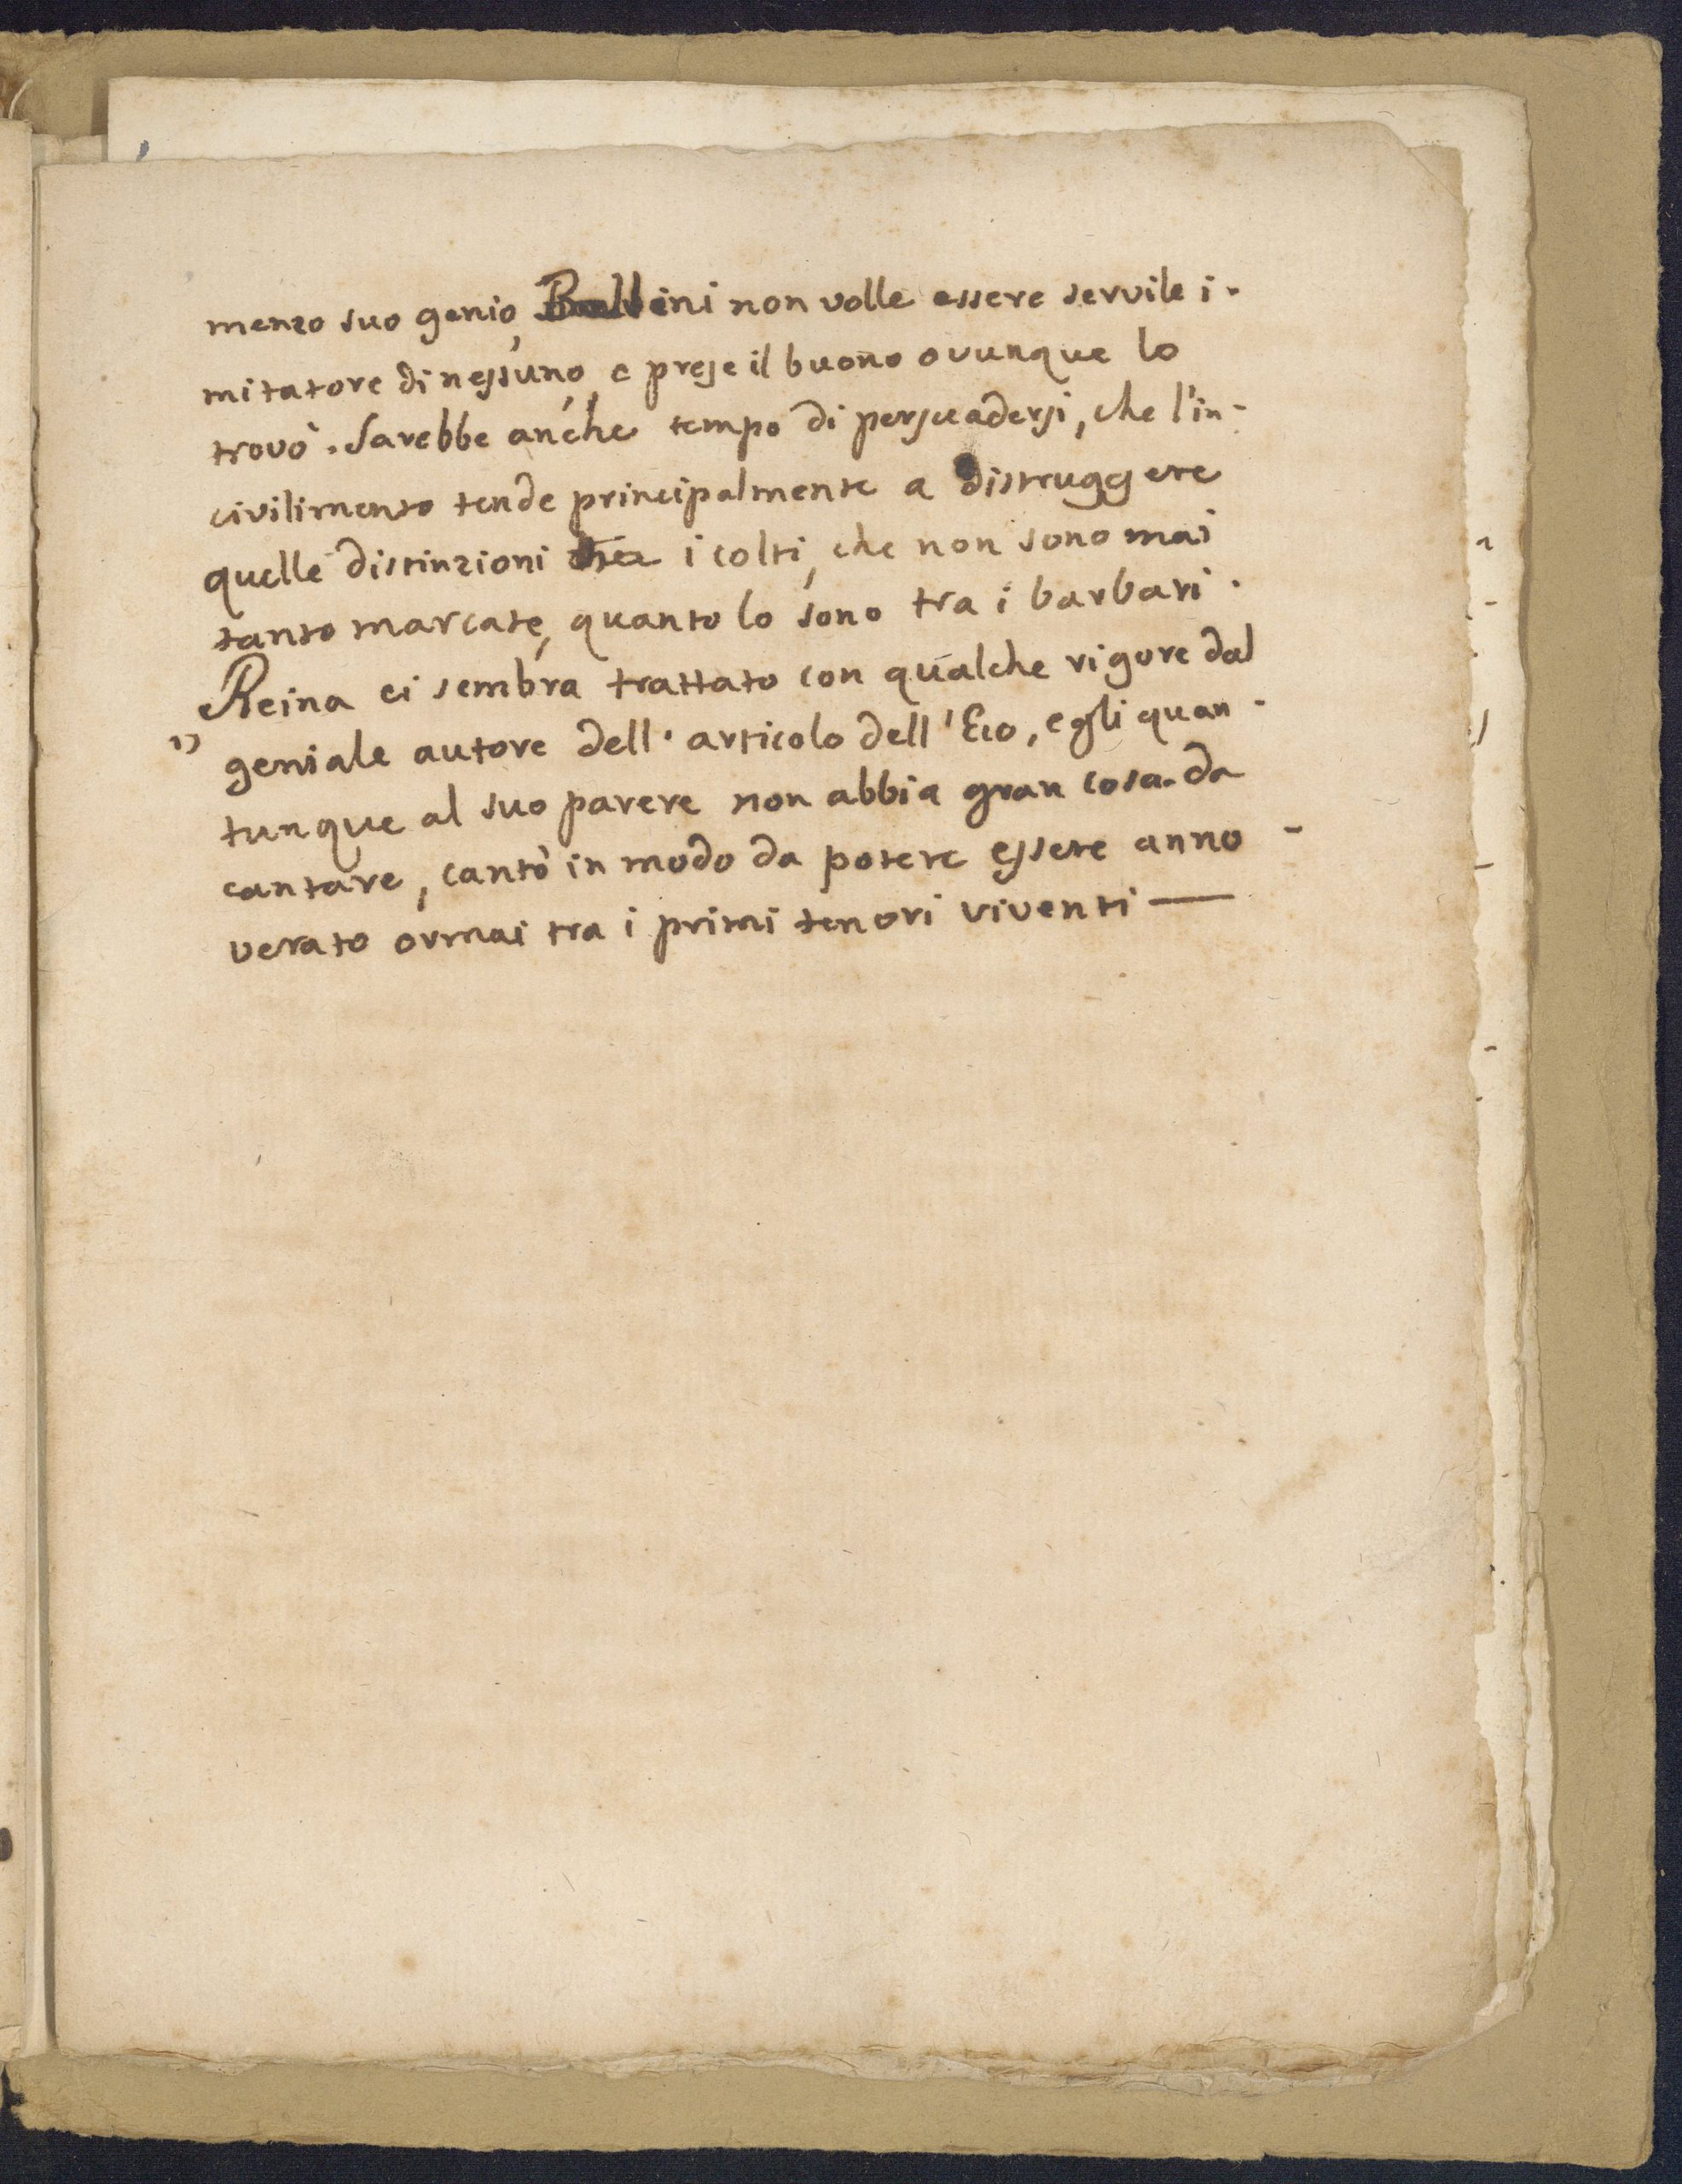 menso suo genio, Bellini non volle essere servile i-
mitatore di nessuno, e prese il buono ovunque lo
trovò. Sarebbe anche tempo di persuadersi, che l'in-
civilimento tende principalmente a distruggere
quelle distinzioni tra i colti, che non sono mai
tanto marcate, quanto lo sono tra i barbari.
Reina ci sembra trattato con qualche rigore dal
" geniale autore dell'articolo dell'Eco, egli quan-
tunque al suo parere non abbia gran cosa da
cantare, cantò in modo da potere essere anno-
verato ormai tra i primi tenori viventi —